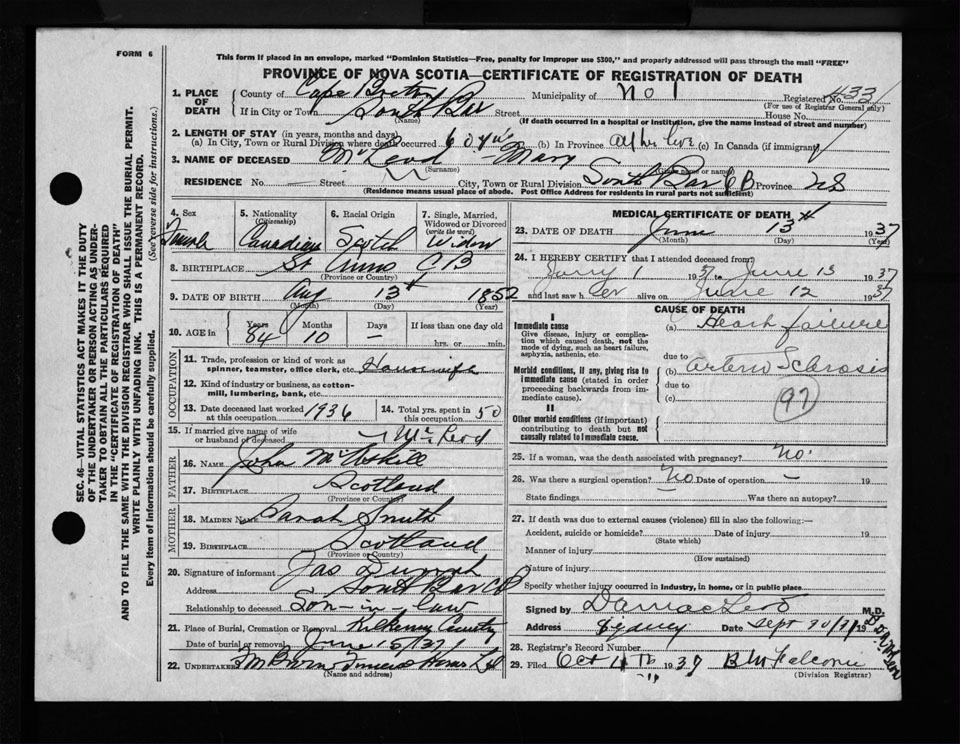 FORM 6
This form if placed in an envelope, marked "Dominion Statistics—Free, penalty for improper use $300," and properly addressed will pass through the mail "FREE"
PROVINCE OF NOVA SCOTIA—CERTIFICATE OF REGISTRATION OF DEATH
1. PLACE OF DEATH County of Cape Breton Municipality of No 1 Registered No. 433
(For use of Registrar General only)
If in City or Town South Bar Street House No.
(Name) (If death occurred in a hospital or institution, give the name instead of street and number)
2. LENGTH OF STAY (in years, months and days)
(a) In City, Town or Rural Division where death occurred 60 yrs (b) In Province all her live (c) In Canada (if immigrant)
3. NAME OF DECEASED McLeod - Mary
(Surname) (Given name or names)
RESIDENCE No. — Street City, Town or Rural Division South Bar C B Province NS
(Residence means usual place of abode. Post Office Address for residents in rural parts not sufficient)
4. Sex Female
5. Nationality (Citizenship) Canadian
6. Racial Origin Scotch
7. Single, Married, Widowed or Divorced (write the word) Widow
8. BIRTHPLACE St Anns C B
(Province or Country)
9. DATE OF BIRTH Aug 13th 1852
(Month) (Day) (Year)
10. AGE in Years 84 Months 10 Days — If less than one day old hrs. or min.
OCCUPATION
11. Trade, profession or kind of work as spinner, teamster, office clerk, etc. Housewife
12. Kind of industry or business, as cotton-mill, lumbering, bank, etc.
13. Date deceased last worked at this occupation 1936
14. Total yrs. spent in this occupation 50
15. If married give name of wife or husband of deceased McLeod
FATHER
16. NAME John McAskill
17. BIRTHPLACE Scotland
(Province or Country)
MOTHER
18. MAIDEN NAME Sarah Smith
19. BIRTHPLACE Scotland
(Province or Country)
20. Signature of informant Jas
Address South Bar C B
Relationship to deceased Son-in-law
21. Place of Burial, Cremation or Removal
Date of burial or removal June 15/37
22. UNDERTAKER Funeral Home Ltd
(Name and address)
MEDICAL CERTIFICATE OF DEATH
23. DATE OF DEATH June 13th 1937
(Month) (Day) (Year)
24. I HEREBY CERTIFY that I attended deceased from
1 1937 to June 13 1937
and last saw her alive on June 12 1937
CAUSE OF DEATH
I
Immediate cause
Give disease, injury or complication which caused death, not the mode of dying, such as heart failure, asphyxia, asthenia, etc.
(a) Heart failure
due to
Morbid conditions, if any, giving rise to immediate cause (stated in order proceeding backwards from immediate cause).
(b) Arterio Sclerosis
due to
(c)
97
II
Other morbid conditions (if important) contributing to death but not causally related to immediate cause.
25. If a woman, was the death associated with pregnancy? No.
26. Was there a surgical operation? No Date of operation — 19
State findings Was there an autopsy?
27. If death was due to external causes (violence) fill in also the following:—
Accident, suicide or homicide? Date of injury 19
(State which)
Manner of injury
(How sustained)
Nature of injury
Specify whether injury occurred in industry, in home, or in public place.
Signed by M.D.
Address Sydney Date Sept 19
28. Registrar's Record Number
29. Filed Oct 4th 1937 B W Falconer
(Division Registrar)
SEC. 46—VITAL STATISTICS ACT MAKES IT THE DUTY
OF THE UNDERTAKER OR PERSON ACTING AS UNDER-
TAKER TO OBTAIN ALL THE PARTICULARS REQUIRED
IN THE "CERTIFICATE OF REGISTRATION OF DEATH"
AND TO FILE THE SAME WITH THE DIVISION REGISTRAR WHO SHALL ISSUE THE BURIAL PERMIT.
WRITE PLAINLY WITH UNFADING INK. THIS IS A PERMANENT RECORD.
Every item of information should be carefully supplied. (See reverse side for instructions.)